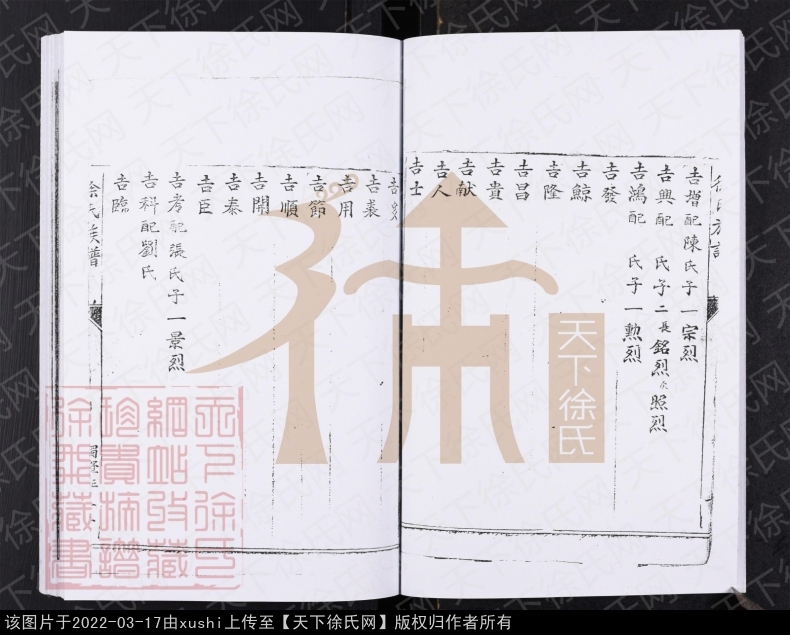 吉增配陳氏子一宗烈
吉興配 氏子二長銘烈次照烈
吉鴻配 氏子一勲烈
吉發
吉鯨
吉隆
吉昌
吉貴
吉献
吉人
吉士
吉裘
吉用
吉節
吉順
吉開
吉泰
吉臣
吉考配張氏子一景烈
吉科配劉氏
吉臨
徐氏族譜
天下徐氏
天下徐氏网
该图片于2022-03-17由xushi上传至【天下徐氏网】版权归作者所有